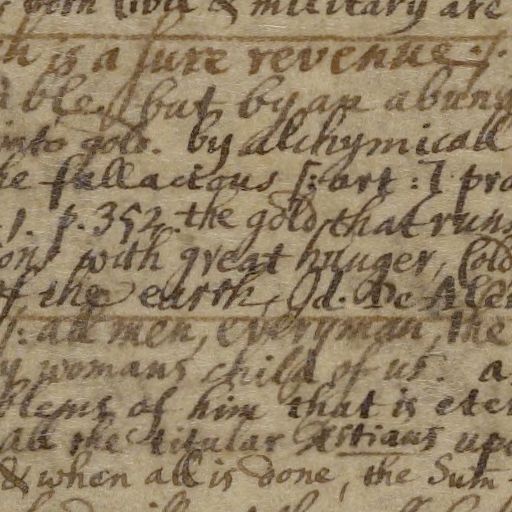 both civil & military are
is a sure revenue
ble, but by an abun
into gold. by alchymicall
he fallacious [: art :] pro
1. p. 352. the gold that runs
ons with great hunger, Cold
of the earth, Id. De Alex
all men, every man, the
y womans child of us. a
blems of him that is eter
all the titular Xstians upo
& when all is done, the Sum